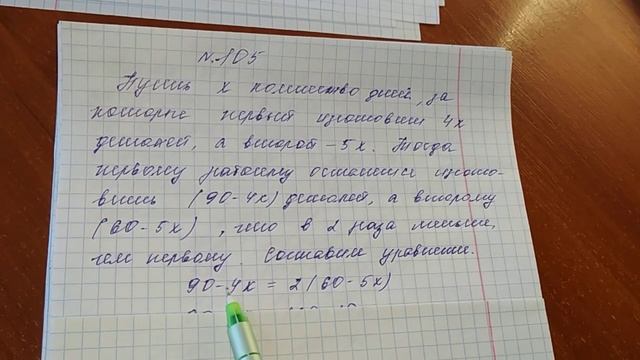 №105
Пусть x количество дней, за
которые первый изготовит 4x
деталей, а второй - 5x. Тогда
первому рабочему останется изгото-
вить (90-4x) деталей, а второму
(60-5x), что в 2 раза меньше,
чем первому. Составим уравнение.
90-4x = 2(60-5x)